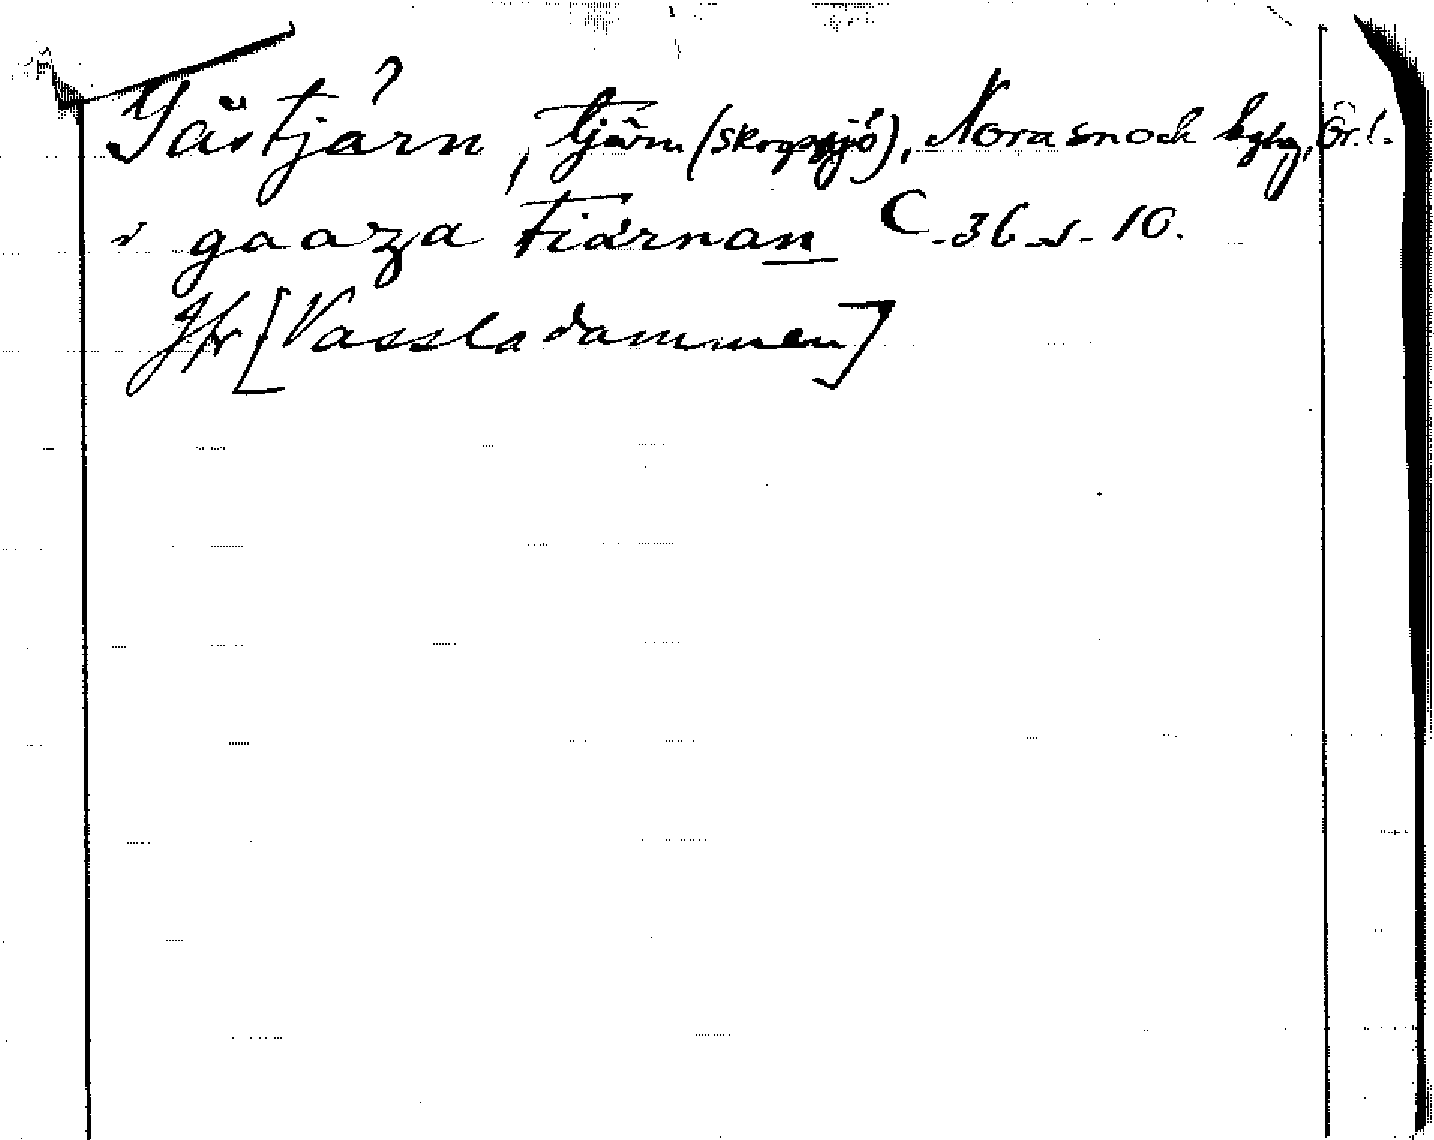 Gåstjärn?, tjärn (skogssjö), Nora sn och bgby, Ör. l.
i gaaza tiärnan C-36-1-10.
Jfr [Vassladammen]